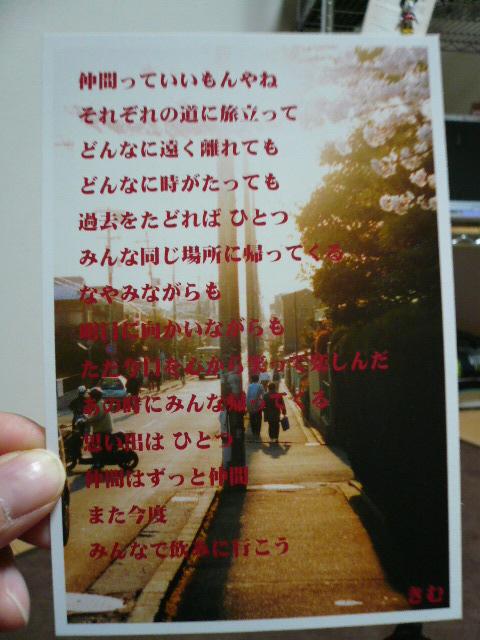 仲間っていいもんやね
それぞれの道に旅立って
どんなに遠く離れても
どんなに時がたっても
過去をたどれば ひとつ
みんな同じ場所に帰ってくる
なやみながらも
明日に向かいながらも
ただ今日を心から笑って楽しんだ
あの時にみんな帰ってくる
思い出は ひとつ
仲間はずっと仲間
また今度
みんなで飲みに行こう
きむ